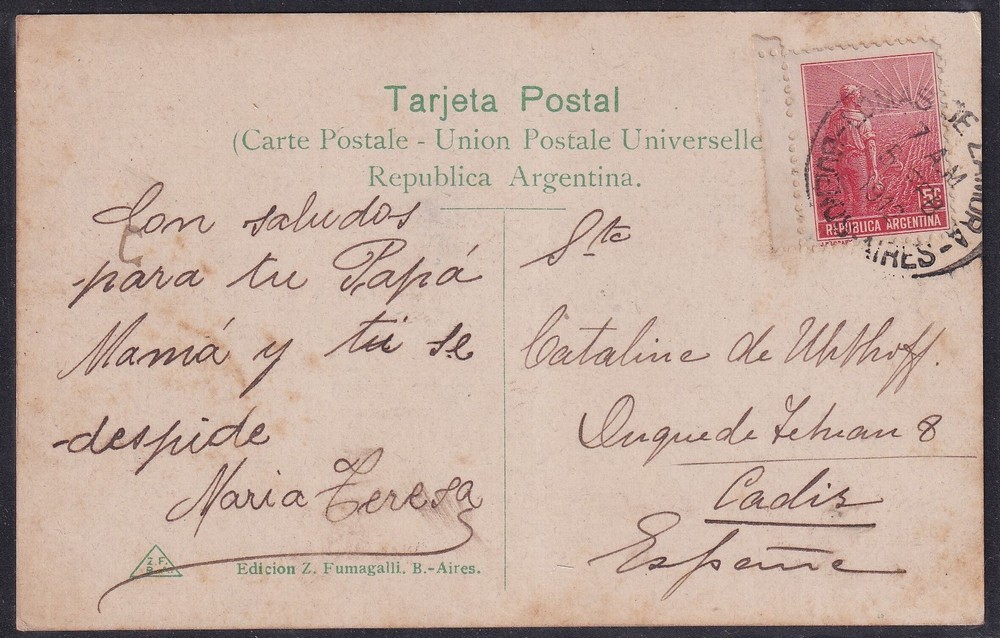 Tarjeta Postal
(Carte Postale - Union Postale Universelle
Republica Argentina.
Con saludos
para tu Papá
Mamá y tú se
despide
Maria Teresa
Z. F.
B. A.
Edicion Z. Fumagalli. B.-Aires.
5c
REPUBLICA ARGENTINA
LOMAS DE ZAMORA-
AIRES-
7 AM
Sta
Catalina de Uhthoff.
Duque de Tetuan 8
Cadiz
España